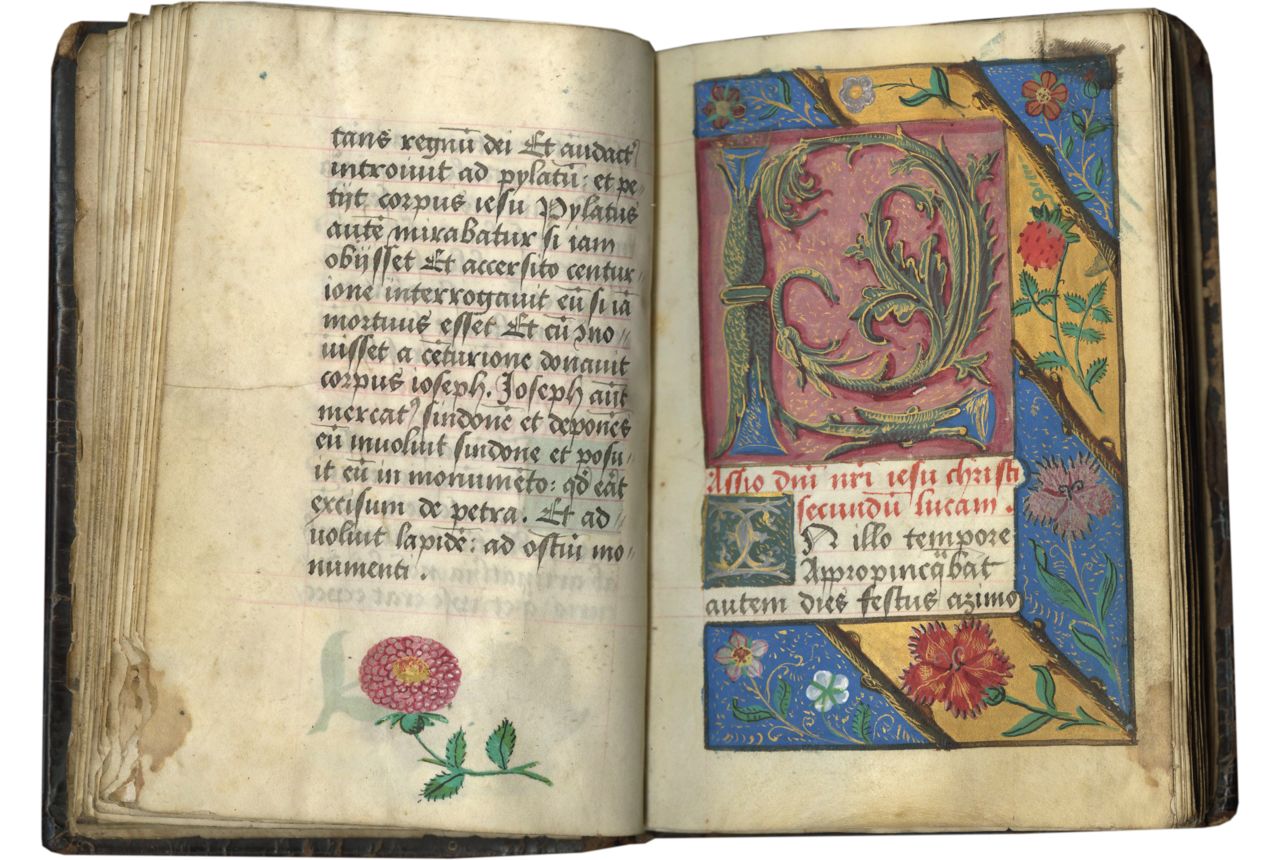 tans regnū dei Et audact᷒
introiuit ad pylatū: et pe-
tijt corpus iesu Pylatus
autē mirabatur si iam
obijsset Et accersito centur-
ione interrogauit eū si iā
mortuus esset Et cū ɔno-
uisset a cēturione donauit
corpus ioseph. Joseph aūt
mercat᷒ sindonē et deponēs
eū inuoluit sindone et posu-
it eū in monumēto: qd̄ eāt
excisum de petra. Et ad-
uoluit lapidē: ad ostiū mo-
numenti.
Passio dn̄i nr̄i iesu christi
secundū lucam.
IN illo tempore
Appropinq̄bat
autem dies festus azimo